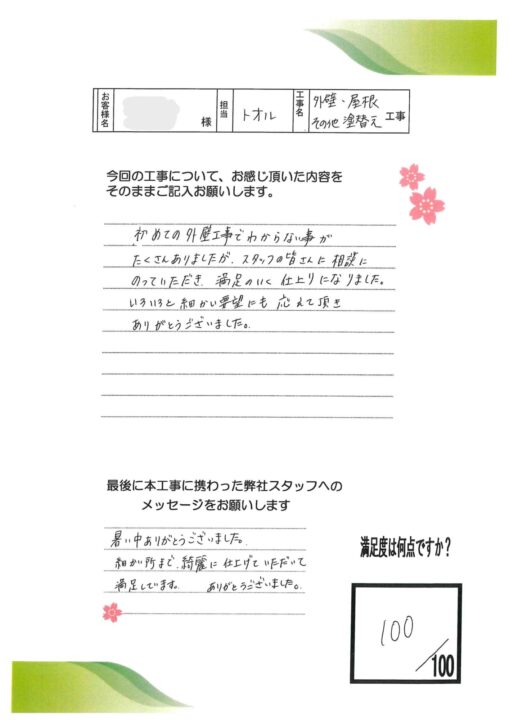 お客様名 様 担当 トオル 工事名 外壁・屋根
その他 塗替え 工事
今回の工事について、お感じ頂いた内容を
そのままご記入お願いします。
初めての外壁工事でわからない事が
たくさんありましたが、スタッフの皆さんに相談に
のっていただき、満足のいく仕上りになりました。
いろいろと細かい要望にも応えて頂き
ありがとうございました。
最後に本工事に携わった弊社スタッフへの
メッセージをお願いします
暑い中ありがとうございました。
細か所まで、綺麗に仕上げていただいて
満足しています。 ありがとうございました。
満足度は何点ですか?
100/100